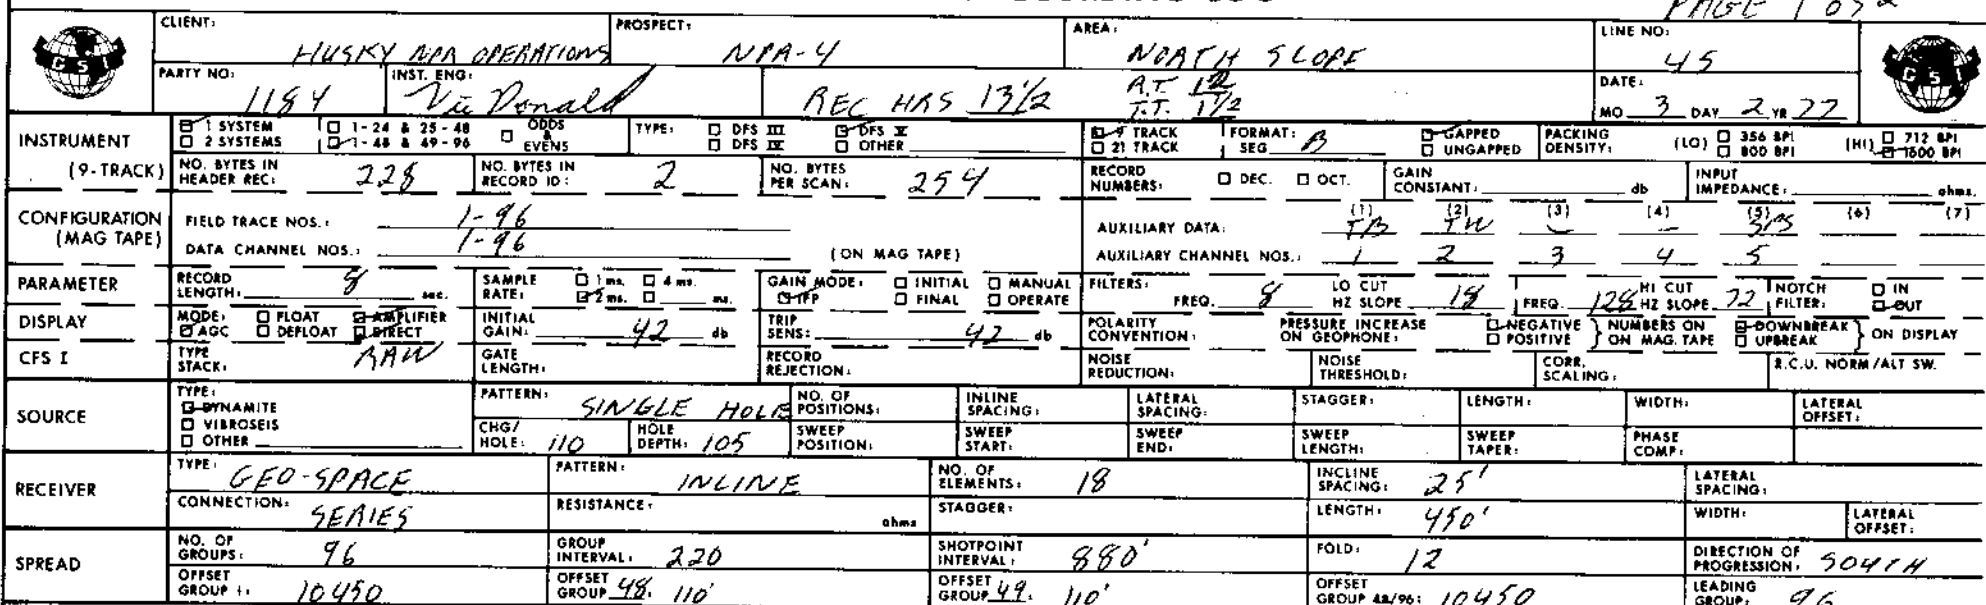 PAGE 1 OF 2
CLIENT: HUSKY NPR OPERATIONS PROSPECT: NPA-4 AREA: NORTH SLOPE LINE NO: 45
GSI GSI
PARTY NO: 1184 INST. ENG: Vic Donald REC HRS 13 1/2 R.T. T.T. 1 1/2 DATE: MO 3 DAY 2 YR 77
INSTRUMENT (9-TRACK) 1 SYSTEM 2 SYSTEMS 1-24 & 25-48 1-48 & 49-96 ODDS & EVENS TYPE: DFS III DFS IV DFS V OTHER 9 TRACK 21 TRACK FORMAT: SEG B GAPPED UNGAPPED PACKING DENSITY: (LO) 356 BPI 800 BPI (HI) 712 BPI 1600 BPI
NO. BYTES IN HEADER REC: 228 NO. BYTES IN RECORD ID: 2 NO. BYTES PER SCAN: 254 RECORD NUMBERS: DEC. OCT. GAIN CONSTANT: db INPUT IMPEDANCE: ohms.
CONFIGURATION (MAG TAPE) FIELD TRACE NOS.: 1-96 AUXILIARY DATA: (1) TB (2) TW (3) - (4) - (5) (6) (7)
DATA CHANNEL NOS.: 1-96 (ON MAG TAPE) AUXILIARY CHANNEL NOS.: 1 2 3 4 5
PARAMETER RECORD LENGTH: 8 sec. SAMPLE RATE: 1 ms. 4 ms. 2 ms. ms. GAIN MODE: INITIAL MANUAL IFP FINAL OPERATE FILTERS: FREQ. 8 LO CUT HZ SLOPE 18 FREQ. 128 HI CUT HZ SLOPE 72 NOTCH FILTER: IN OUT
DISPLAY MODE: FLOAT AMPLIFIER AGC DEFLOAT DIRECT INITIAL GAIN: 42 db TRIP SENS: 42 db POLARITY CONVENTION: PRESSURE INCREASE ON GEOPHONE: NEGATIVE POSITIVE } NUMBERS ON MAG. TAPE DOWNBREAK UPBREAK } ON DISPLAY
CFS I TYPE STACK: RAW GATE LENGTH: RECORD REJECTION: NOISE REDUCTION: NOISE THRESHOLD: CORR. SCALING: R.C.U. NORM/ALT SW.
SOURCE TYPE: DYNAMITE VIBROSEIS OTHER PATTERN: SINGLE HOLE NO. OF POSITIONS: INLINE SPACING: LATERAL SPACING: STAGGER: LENGTH: WIDTH: LATERAL OFFSET:
CHG/HOLE: 110 HOLE DEPTH: 105 SWEEP POSITION: SWEEP START: SWEEP END: SWEEP LENGTH: SWEEP TAPER: PHASE COMP:
RECEIVER TYPE: GEO-SPACE PATTERN: INLINE NO. OF ELEMENTS: 18 INCLINE SPACING: 25' LATERAL SPACING:
CONNECTION: SERIES RESISTANCE: ohms STAGGER: LENGTH: 450' WIDTH: LATERAL OFFSET:
SPREAD NO. OF GROUPS: 96 GROUP INTERVAL: 220 SHOTPOINT INTERVAL: 880' FOLD: 12 DIRECTION OF PROGRESSION: SOUTH
OFFSET GROUP 1: 10450 OFFSET GROUP 48: 110' OFFSET GROUP 49: 110' OFFSET GROUP 48/96: 10450 LEADING GROUP: 96